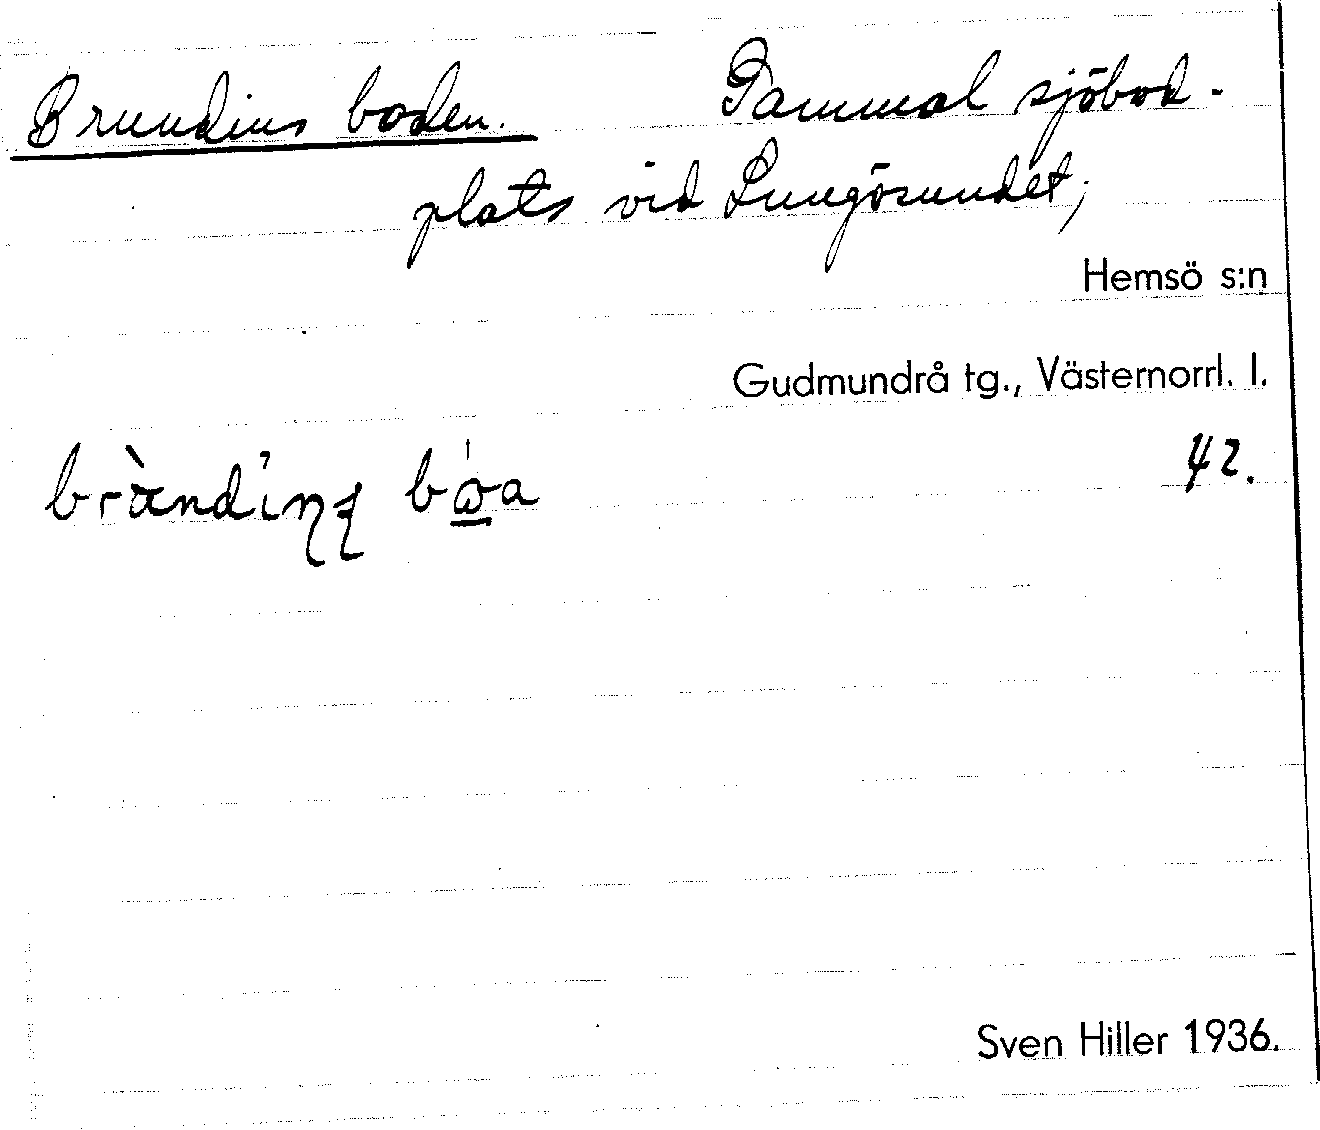 Brundins boden. Gammal sjöbod-
plats vid Lungösundet;
Hemsö s:n
Gudmundrå tg., Västernorrl. l.
42.
Sven Hiller 1936.